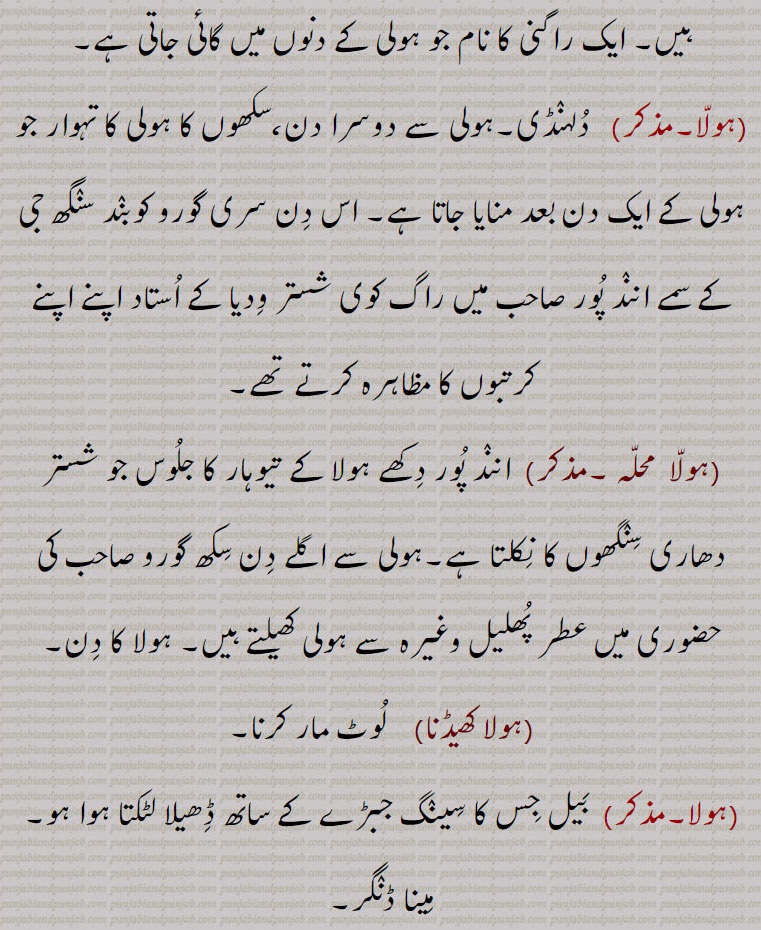 ہیں۔ ایک راگنی کا نام جو ہولی کے دنوں میں گائی جاتی ہے۔
(ہولّا۔مذکر) دُلہنڈی۔ہولی سے دوسرا دن،سکھوں کا ہولی کا تہوار جو
ہولی کے ایک دن بعد منایا جاتا ہے۔ اس دِن سری گورو کوبند سنگھ جی
کے سمے انند پُور صاحب میں راگ کوی شستر وِدیا کے اُستاد اپنے اپنے
کرتبوں کا مظاہرہ کرتے تھے۔
(ہولّا محلّہ ۔مذکر) انند پُور دِکھے ہولا کے تیوہار کا جلُوس جو شستر
دھاری سِنگھوں کا نِکلتا ہے۔ہولی سے اگلے دِن سِکھ گورو صاحب کی
حضوری میں عطر پُھلیل وغیرہ سے ہولی کھیلتے ہیں۔ ہولا کا دِن۔
(ہولا کھیڈنا) لُوٹ مار کرنا۔
(ہولا۔مذکر) بَیل جِس کا سِینگ جبڑے کے ساتھ ڈِھیلا لٹکتا ہوا ہو۔
مِینا ڈنگر۔